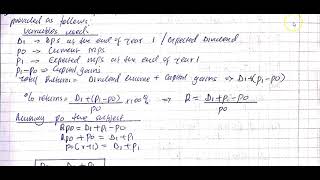 provided as follows:
Variables used:
D1 → DPS at the end of year 1 / Expected Dividend
P0 → Current mps
P1 → Expected mps at the end of year 1
P1-P0 → Capital gains
Total Returns = Dividend income + Capital gains ⇒ D1+(P1-P0)
% returns = D1+(P1-P0) / P0 x100% ⇒ R = D1+P1-P0 / P0
P0 the subject
RP0 = D1+P1-P0
RP0 + P0 = D1+P1
P0(R+1) = D1+P1